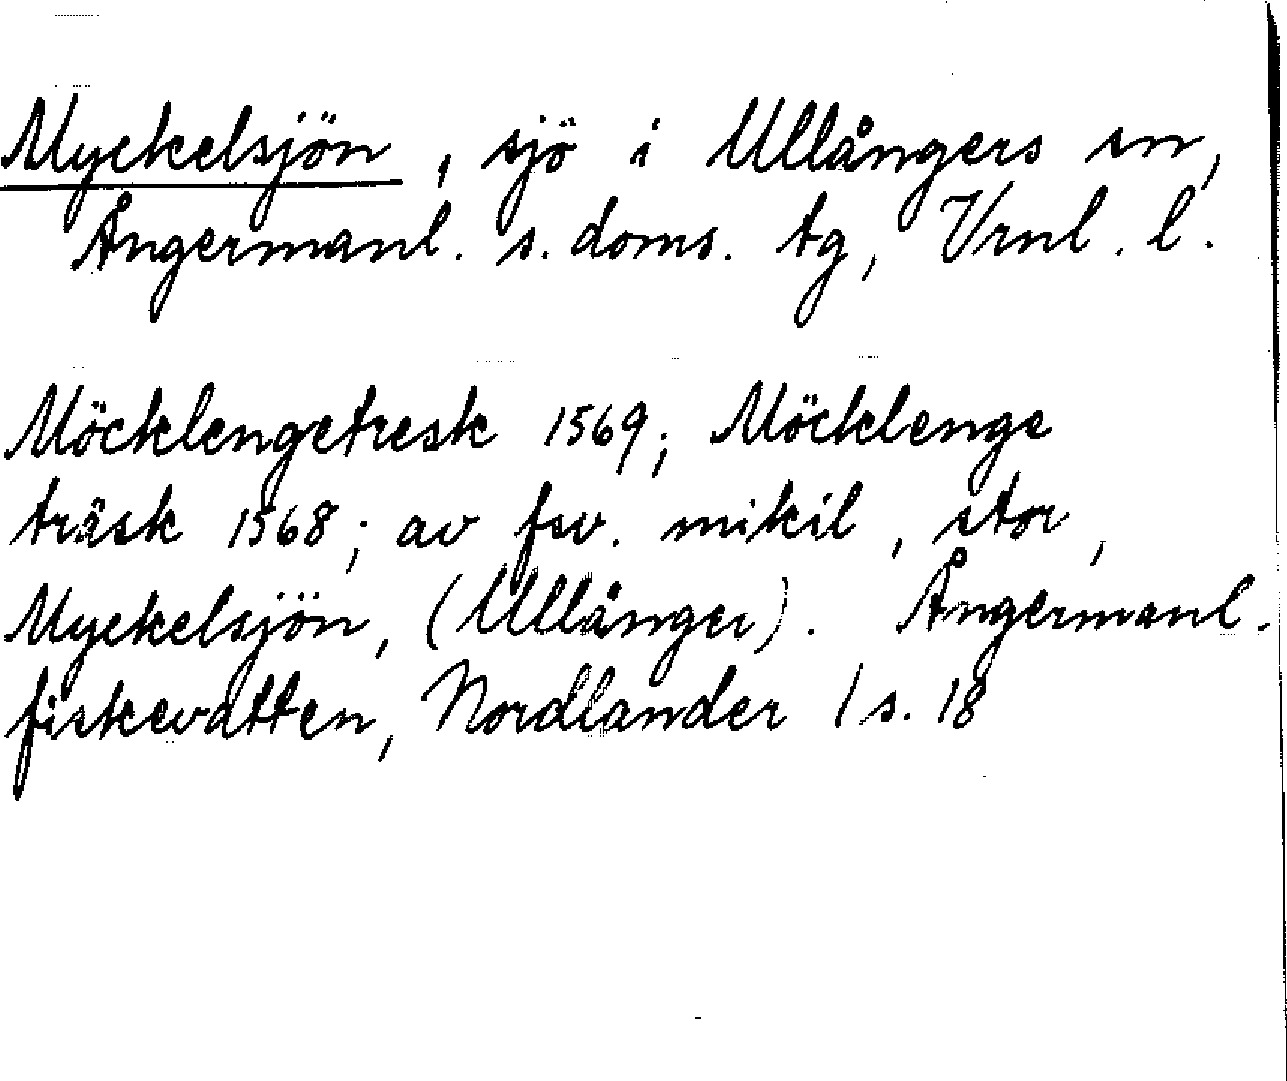 Myckelsjön, sjö i Ullångers sn,
Ångermanl. s. doms. tg, Vrnl. l.
Möcklengetresk 1569; Möcklenge
träsk 1568; av fsv. mikil, stor,
Myckelsjön, (Ullånger). Ångermanl.
fiskevatten, Nordlander 1 s. 18